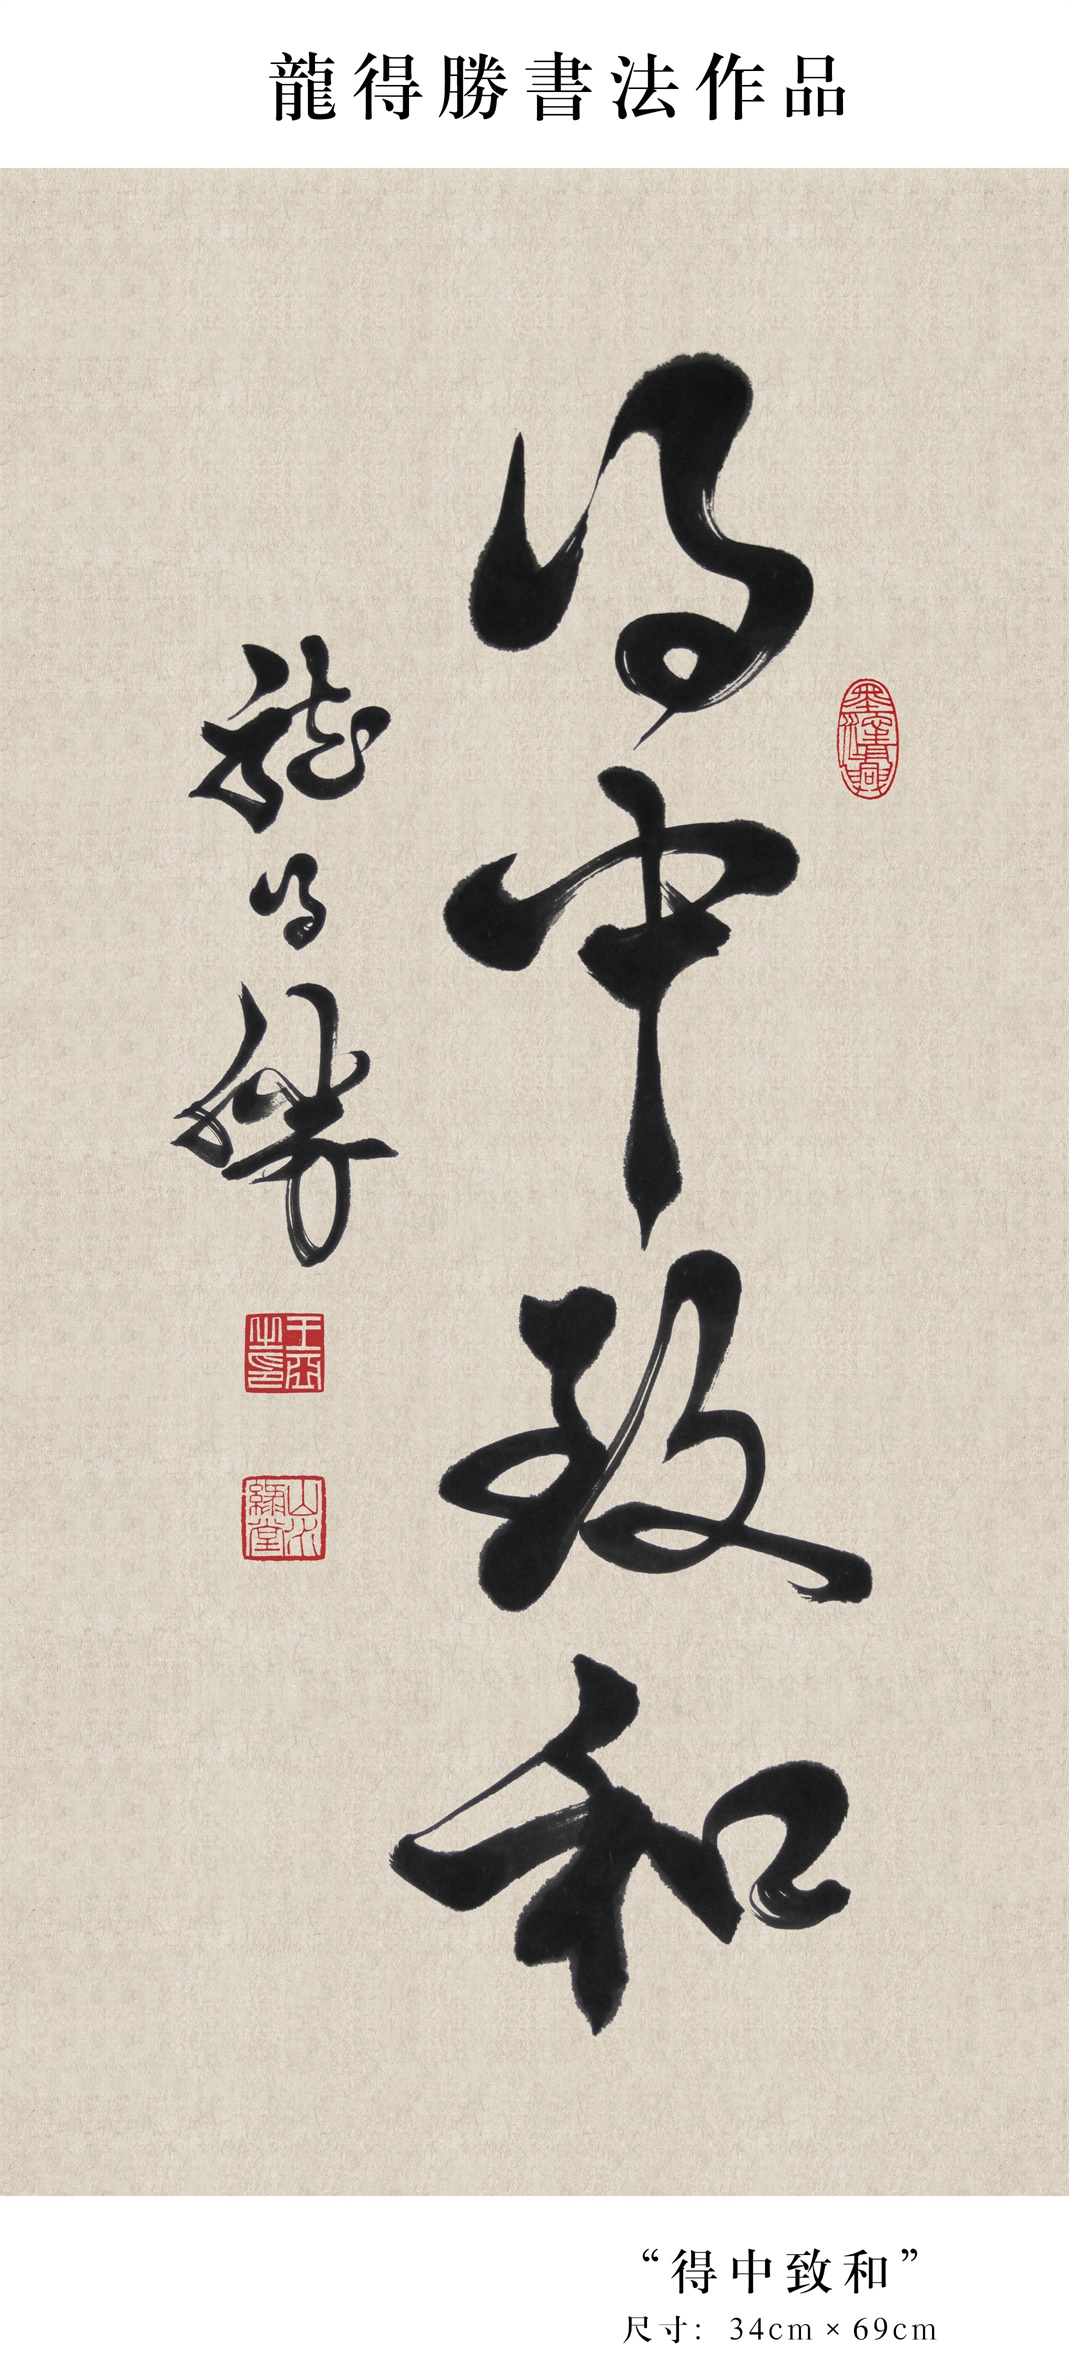 龍得勝書法作品
得中致和
龍得勝
山水
綠堂
“得中致和”
尺寸：34cm×69cm